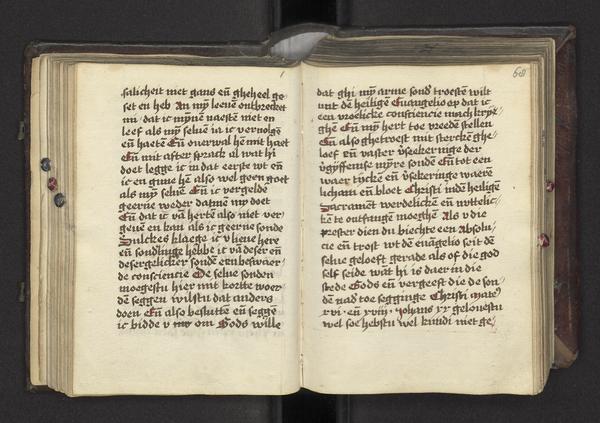 salicheit niet gans eñ gheheel ge
set en heb An mÿ leuen ontbreeket
mi dat ic mÿnē naesté niet en
leef als mÿ selue ia ic veruolge
eñ haeté Eñ ouerwal hē mit haet
Eñ mit after sprack al wat hi
doet legge ic in dat eerste wt eñ
ic en gune hē also wel geen goet
als mÿ selue Eñ ic vergelde
geerne weder datmē mÿ doet
Eñ dat ic vā herté also niet ver
geuē en kan als ic geerne sonde
Sulckes klaege ic v lieue here
eñ sonderlinge hebbe ic vā deser eñ
desergelicker sondē een beswaer
de consciencie Die selue sonden
moegestu hier mit kortte woer
dē seggen wilstu dat anders
doen Eñ also beslutté eñ seggē
ic bidde v om Gods wille
68
dat ghi mÿ arme sond troestē wilt
wt dē heiligē Euangelio op dat ic
een vroelicke consciencie mach krÿ
ghē Eñ mÿ hert toe vredē stellen
Eñ also ghetroest mit sterckē ghe
loef eñ vaster v̄seekeringe der
v̄gÿffenisse mÿre sondē Eñ tot een
waer tÿckē eñ v̄sekeringe waere
licham eñ bloet Christi indē heiligē
Sacramēt werdelickē eñ nuttelic
kē te ontfangē moeghē Als v die
prester dien du biechte een Absolu
cie eñ trost wt dē euāgelio seit dē
selue geloeft gerade als of die god
self seide wāt hi is daer in die
stede Gods eñ vergeeft die de son
dē nad toe segginge Christi Mate
xvi eñ xviij Johans xx gelouestu
wel soe hebstu wel kundi niet ge